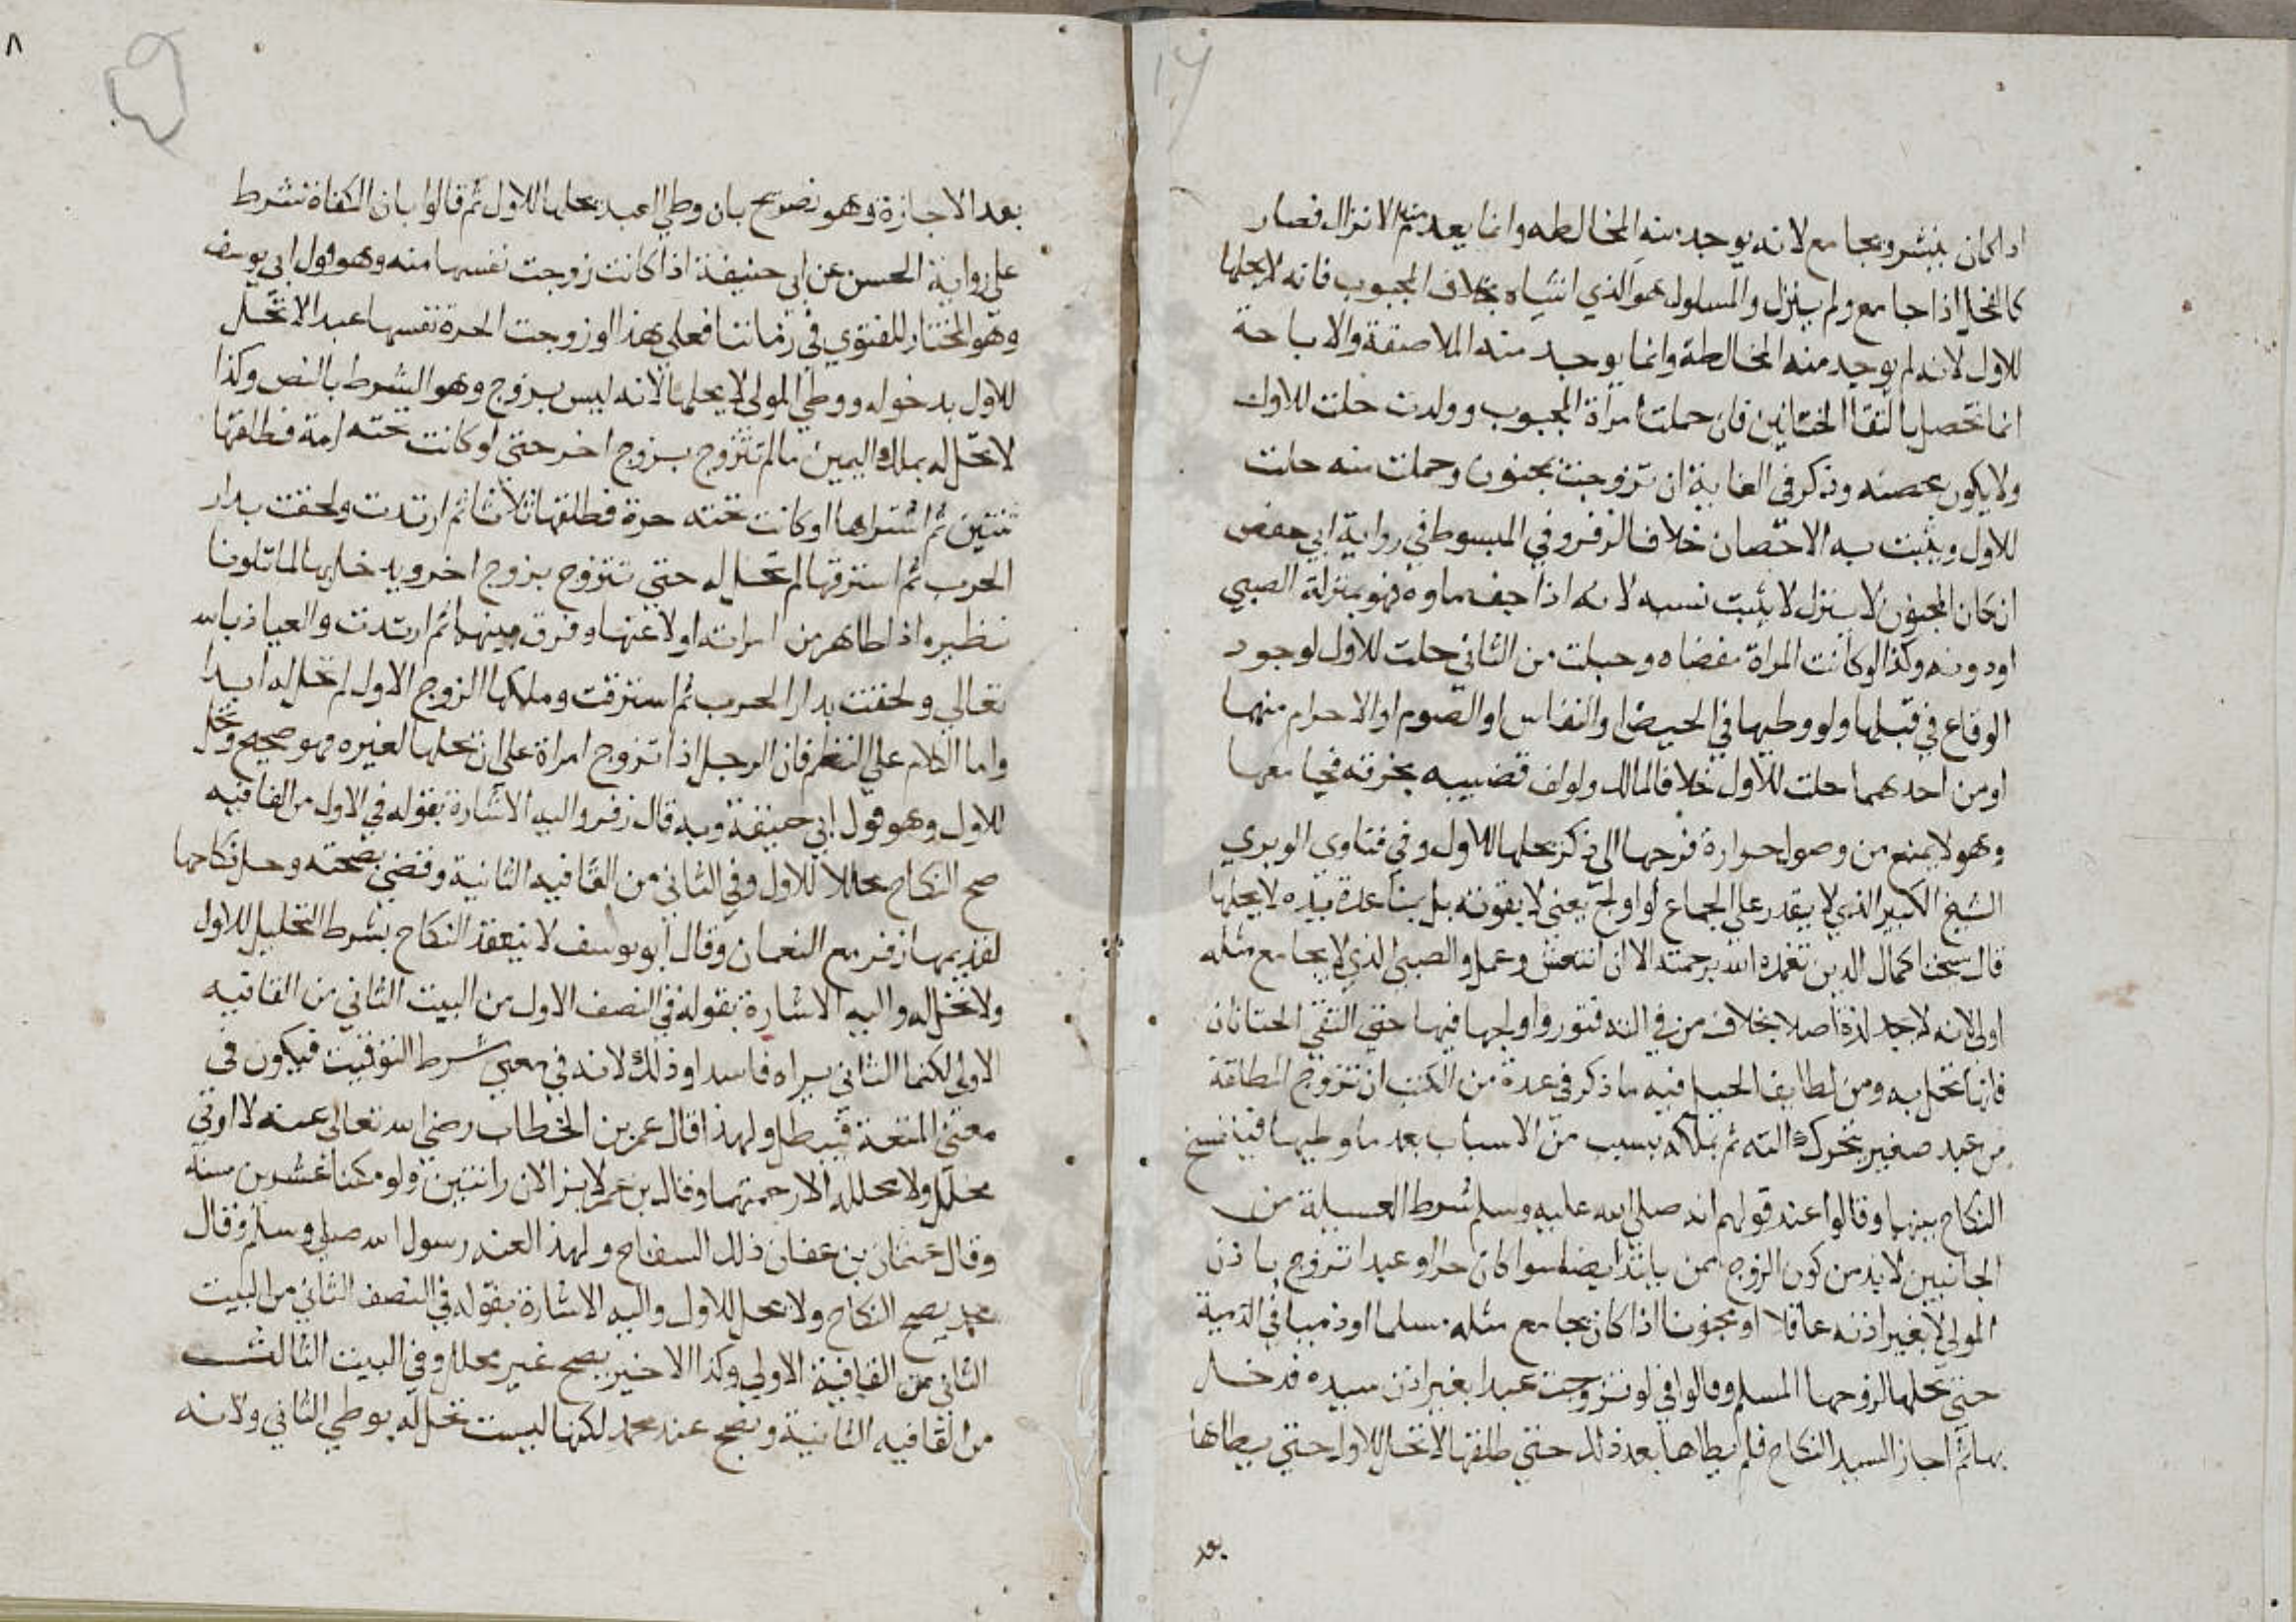 اذا كان ينتشر ويجامع لانه يوجد منه المخالطه وانما يعدم منه الانزال فصار
كالفحل اذا جامع ولم ينزل والمسلول هو الذي انثياه بخلاف المجبوب فانه لا يحلها
للاول لانه لم يوجد منه المخالطة وانما يوجد منه الملاصقة والاباحة
انما تحصل بالتقا الختانين فان حملت امرأة المجبوب وولدت حلت للاول
ولا يكون محصنه وذكر في الغاية ان تزوجت بمجنون وحملت منه حلت
للاول ويثبت به الاحصان خلافا لزفر وفي المبسوط في رواية ابي حفص
ان كان المجبوب لا ينزل لا يثبت نسبه لانه اذا جف ماوه فهو بمنزلة الصبي
او دونه وكذا لو كانت المراة مفضاه وحبلت من الثاني حلت للاول لوجود
الوقاع في قبلها ولو وطيها في الحيض او النفاس او الصوم او الاحرام منهما
او من احدهما حلت للاول خلافا لمالك ولو لف قضيبه بخرقه فجامعها
وهو لا يمنع من وصول حرارة فرجها الى ذكره يحلها للاول وفي فتاوي الوبري
الشيخ الكبير الذي لا يقدر على الجماع لو اولج يعني لا بقوته بل بمساعدة يده لا يحلها
قال شيخنا كمال الدين تغمده الله برحمته الا ان انتعش وعمل والصبي الذي لا يجامع مثله
اولى لانه لا يجد لذة اصلا بخلاف من في آلته فتور واولجها فيها حتى التقي الختانان
فانها تحل به ومن لطايف الحيل فيه ما ذكر في عدة من الكتب ان تتزوج المطلقة
من عبد صغير تتحرك آلته ثم تملكه بسبب من الاسباب بعد ما وطيها فينفسخ
النكاح بينهما وقالوا عند قولهم انه صلى الله عليه وسلم شرط العسيلة من
الجانبين لا بد من كون الزوج ممن يلتذ ايضا سوا كان حرا او عبدا تزوج باذن
المولى لا بغير اذنه عاقلا او مجنونا اذا كان يجامع مثله مسلما او ذميا في الذمية
حتى يحلها لزوجها المسلم وقالوا في لو تزوجت عبدا بغير اذن سيده فدخل
بها ثم اجاز السيد النكاح فلم يطاها بعد ذلك حتى طلقها لا تحل للاول حتى يطاها
بعد
بعد الاجازة وهو نصريح بان وطي العبد يحلها للاول ثم قالوا بان الكفاة تشرط
على رواية الحسن عن ابي حنيفة اذا كانت زوجت نفسها منه وهو قول ابي يوسف
وهو المختار للفتوي في زماننا فعلى هذا لو زوجت الحرة نفسها عبدا لا تحل
للاول بدخوله ووطي المولى لا يحلها لانه ليس بزوج وهو الشرط بالنص وكذا
لا تحل له بملك اليمين ما لم تتزوج بزوج اخر حتى لو كانت تحته امة فطلقها
ثنتين ثم اشتراها او كانت تحته حرة فطلقها ثلاثا ثم ارتدت ولحقت بدار
الحرب ثم استرقها لم تحل له حتى تتزوج بزوج اخر ويدخل بها لما تلونا
نظيره اذا ظاهر من امراته او لاعنها وفرق بينهما ثم ارتدت والعياذ بالله
تعالى ولحقت بدار الحرب ثم استرقت وملكها الزوج الاول لم تحل له ابدا
واما الكلام على النظم فان الرجل اذا تزوج امراة على ان يحلها لغيره فهو صحيح وتحل
للاول وهو قول ابي حنيفة وبه قال زفر واليه الاشارة بقوله في الاول من القافيه
صح النكاح محللا للاول وفي الثاني من القافيه الثانية وقضى بصحته وحل نكاحها
لفديمها زفر مع النعمان وقال ابو يوسف لا ينعقد النكاح بشرط التحليل للاول
ولا تحل له واليه الاشارة بقوله في النصف الاول من البيت الثاني من القافيه
الاولى لكنما الثاني يراه فاسدا وذلك لانه في معنى شرط التوقيت فيكون في
معنى المتعة فيبطل ولهذا قال عمر بن الخطاب رضي الله تعالى عنه لا اوتي
بمحلل ولا محلل له الا رجمتهما وقال بن عمر لا يزالان زانيين ولو مكثا عشرين سنة
وقال عثمان بن عفان ذلك السفاح ولهذا لعنه رسول الله صلى وسلم وقال
محمد يصح النكاح ولا تحل للاول واليه الاشارة بقوله في النصف الثاني من البيت
الثاني من القافية الاولى وكذا الاخير يصح غير محلل وفي البيت الثالث
من القافيه الثانية ويصح عند محمد لكنها ليست تحل له بوطي الثاني ولانه